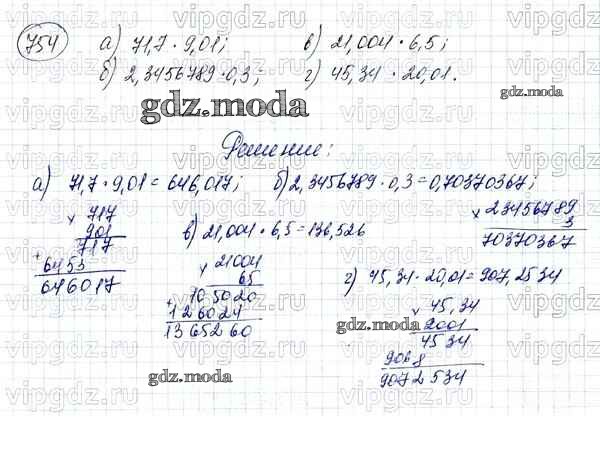 754
а) 71,7 · 9,01;
в) 21,004 · 6,5;
б) 2,3456789 · 0,3;
г) 45,34 · 20,01.
gdz.moda
Решение:
а) 71,7 · 9,01 = 646,017;
б) 2,3456789 · 0,3 = 0,70370367;
× 717
901
717
+ 6453
646017
в) 21,004 · 6,5 = 136,526
× 21004
65
105020
+ 126024
1365260
× 23456789
3
70370367
г) 45,34 · 20,01 = 907,2534
× 45,34
2001
4534
9068
9072534
gdz.moda
gdz.moda
vipgdz.ru